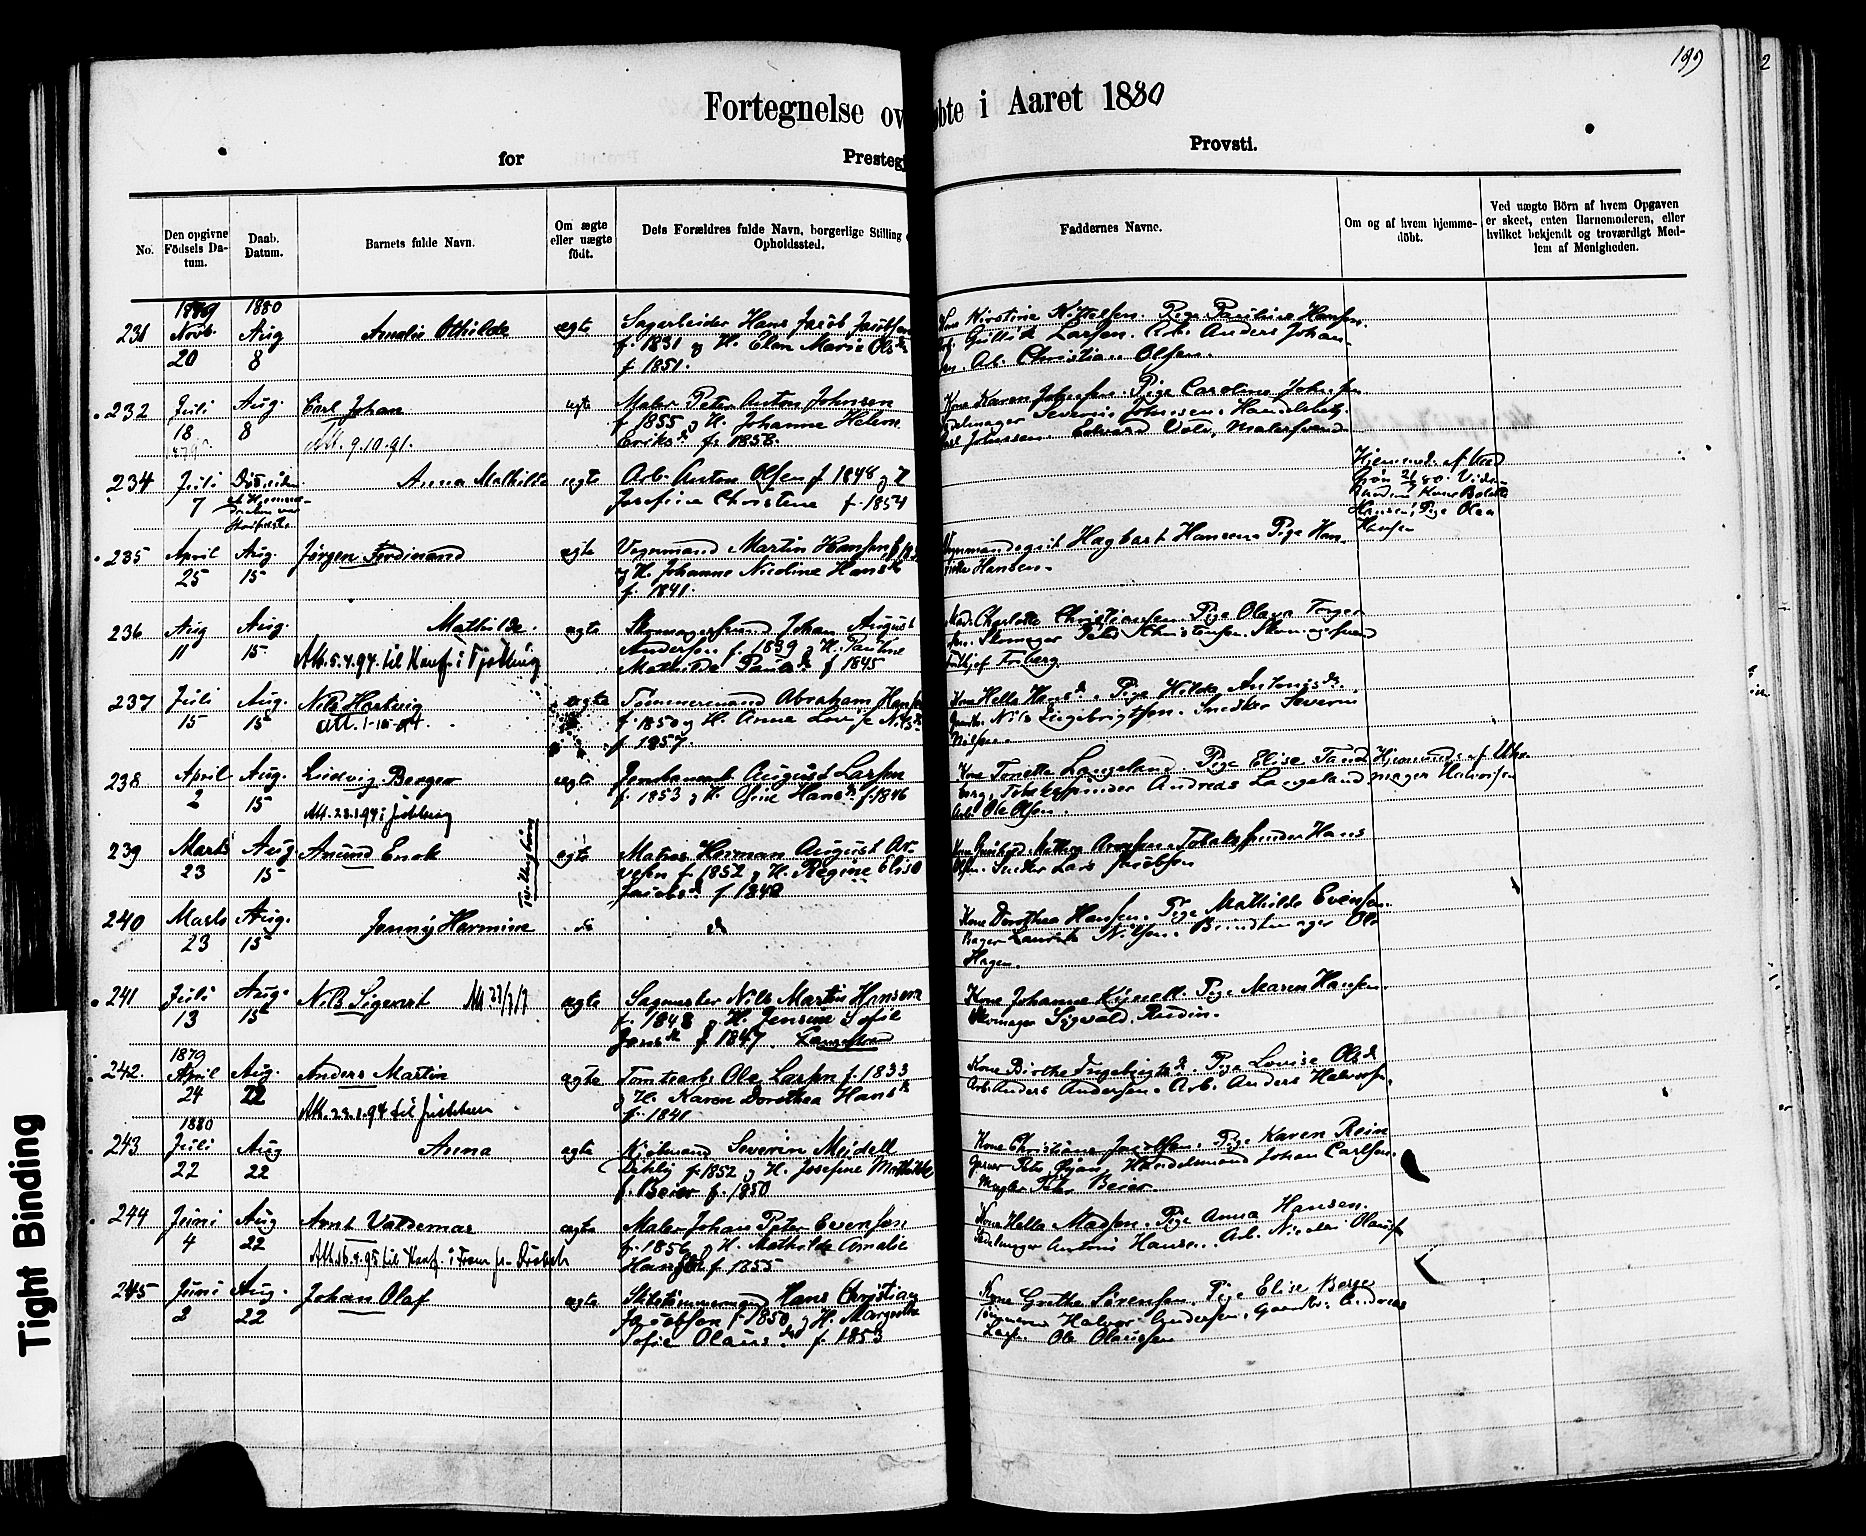 199
2
Fortegnelse ov
öbte i Aaret 1880
for
Prestegj
Provsti.
No.
Den opgivne Födsels Datum.
Daab. Datum.
Barnets fulde Navn.
Om ægte eller uægte födt.
Dets Forældres fulde Navn, borgerlige Stilling
Opholdssted.
Faddernes Navne.
Om og af hvem hjemmedöbt.
Ved uægte Börn af hvem Opgaven er skeet, enten Barnemoderen, eller hvilket bekjendt og troværdigt Medlem af Menigheden.
231
1879
Novb.
20
1880
Aug
8
Amalie Othilde
ægte
Sagarbeider Hans Jacob Jacobsen
f. 1831 og H. Elen Marie Olsd
f. 1851.
Kone Kirstine Kittelsen. Pige Pauline Hansen.
Gullik Larsen. Arb. Anders Johan-
sen. Arb. Christian Olsen.
232
Juli
18
Aug.
8
Carl Johan
Att. 9.10.91.
ægte
Maler Peter Anton Johnsen
f 1855 og H. Johanne Helene
Eriksd. f. 1856.
Kone Karen Johnsen. Pige Caroline Johnsen
Severin Johnsen. Handelsbetj.
Edvard Malersvend
234
Juli
7
Anna Mathilde
ægte
Arb. Anton Olsen f 1848 og H
Josefine Christine f. 1854
Hjemmed. af
Hansen, Pige Olea
Hansen
235
April
25
Aug.
15
Jörgen Ferdinand
ægte
Vognmand Martin Hansen f.
og H. Johanne Nicoline Hansd.
f. 1841.
Vognmandsgut Hagbart Hansen. Pige Han-
Hansen.
236
Aug
11
Aug.
15
Mathilde.
Att. 5.4.94. til Konf. i
ægte
Skomagersvend Johan August
Andersen f. 1839 og H. Pauline
Mathilde Paulsd. f 1845
Mad. Charlotte Christiansen. Pige Olava Torger-
sen. Skomager Peter Christensen. Skomagersvend
Friberg.
237
Juli
15
Aug.
15
Nils Hartvig
Att.
ægte
Tömmermand Abraham Hansen
f. 1850 og H. Anne Lovise Nilsd.
f. 1857.
Kone Helle Hansd. Pige Hilda Antonisd.
Nils Engebrigtsen. Snedker Severin
Nilsen.
238
April
2
Aug.
15
Ludvig Berger
Att. 23.1.94 i
ægte
Jernbanearb. August Larsen
f. 1853 og H. Ofine Hansd. f. 1846
Kone Tonette Langeland. Pige Elise Tand-
berg, Tobaksspinder Andreas Langeland
Arb. Ole Olsen.
Hjemmed. af Uhr-
mager Halvorsen
239
Marts
23
Aug
15
Amund Enok
Tvillingbörn
ægte
Matros Herman August Ar-
vesen f. 1852 og H. Regine Elise
Jacobsd. f 1848
Mathea Arvesen. Tobaksspinder Hans
Olsen. Snedker Lars Jacobsen
240
Marts
23
Aug.
15
Jenny Hermine
do
do
Kone Dorothea Hansen. Pige Mathilde Evensen.
Bager Laurits Nilsen. Bundtmager Ole
Hagen.
241
Juli
13
Aug.
15
Nils Sigvart
Att 23/3/17
ægte
Sagmester Nils Martin Hansen
f. 1848 og H. Jensine Sofie
Jensd. f 1847. Langestrand
Kone Johanne Kinell. Pige Maren Hansen.
Skomager Sigvald Rudin.
242.
1879
April
24
Aug.
22
Anders Martin
Att. 23.1.94 til
ægte
Tomtearb. Ole Larsen f. 1833
og H. Karen Dorothea Hansd.
f. 1841
Kone Birthe Ingebrigtsd. Pige Lovise Olsd.
Arb. Anders Andersen. Arb. Anders Halvorsen.
243
1880
Juli
22
Aug
22
Anna
ægte
Kjöbmand Severin Mejdell
Dehli f. 1852 og H. Josefine Mathilde
f. Beier f. 1850
Kone Christiane Jacobsen. Pige Karen Rein
Garver Peter Handelsmand Johan Carlsen.
Mægler Beier.
244
Juni
4
Aug
22
Arnt Valdemar
Att. 16.4.95 til Konf. i
ægte
Maler Johan Peter Evensen
f. 1856 og H. Mathilde Amalie
Hansd. f 1855
Kone Helle Madsen. Pige Anna Hansen.
Sadelmager Antoni Hansen. Arb. Nicolai Olausen
245
Juni
2
Aug.
22
Johan Olaf
ægte
Skibstömmermand Hans Christian
Jacobsen f. 1850 og H. Margrethe
Sofie Olausd. f. 1853
Kone Grethe Sörensen. Pige Elise Berge
Tömmermd Halvor Gundersen, Andreas
Larsen. Ole Olaussen
Tight Binding